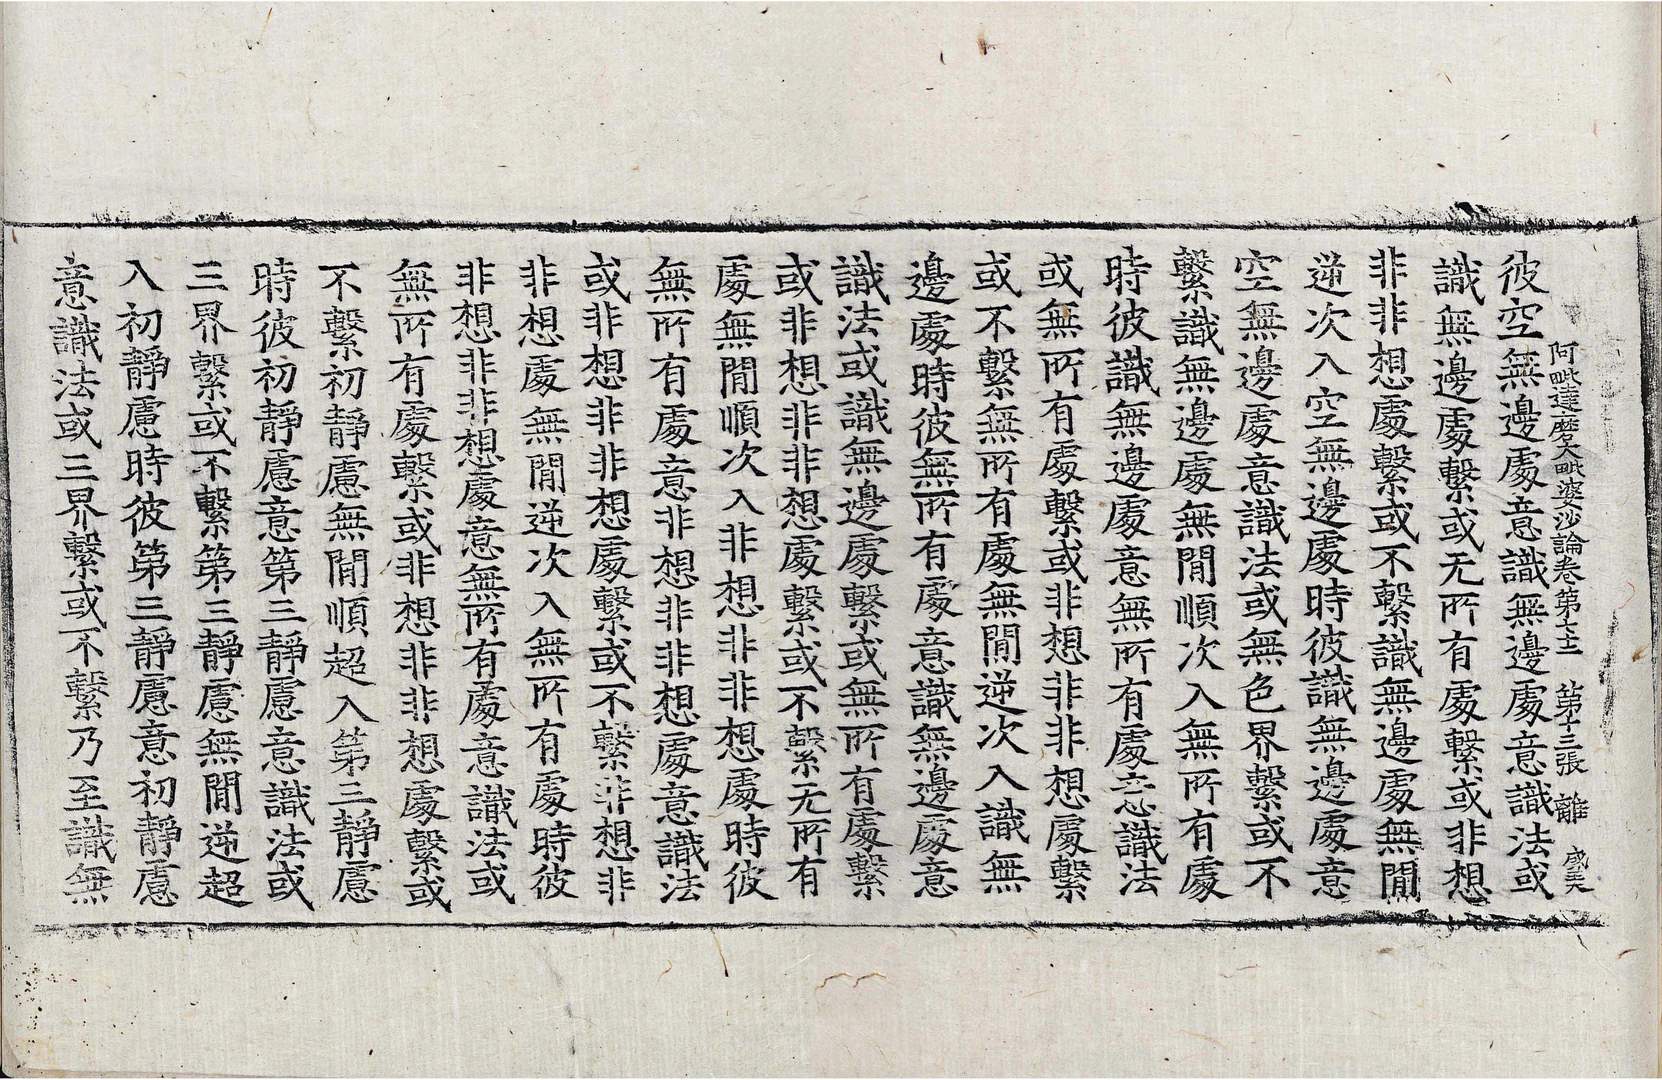 阿毗達磨大毗婆沙論卷第七十三 第十三張 離
彼空無邊處意識無邊處意識法或
識無邊處繫或无所有處繫或非想
非非想處繫或不繫識無邊處無閒
逆次入空無邊處時彼識無邊處意
空無邊處意識法或無色界繫或不
繫識無邊處無閒順次入無所有處
時彼識無邊處意無所有處意識法
或無所有處繫或非想非非想處繫
或不繫無所有處無閒逆次入識無
邊處時彼無所有處意識無邊處意
識法或識無邊處繫或無所有處繫
或非想非非想處繫或不繫无所有
處無閒順次入非想非非想處時彼
無所有處意非想非非想處意識法
或非想非非想處繫或不繫非想非
非想處無閒逆次入無所有處時彼
非想非非想處意無所有處意識法或
無所有處繫或非想非非想處繫或
不繫初靜慮無閒順超入第三靜慮
時彼初靜慮意第三靜慮意識法或
三界繫或不繫第三靜慮無閒逆超
入初靜慮時彼第三靜慮意初靜慮
意識法或三界繫或不繫乃至識無